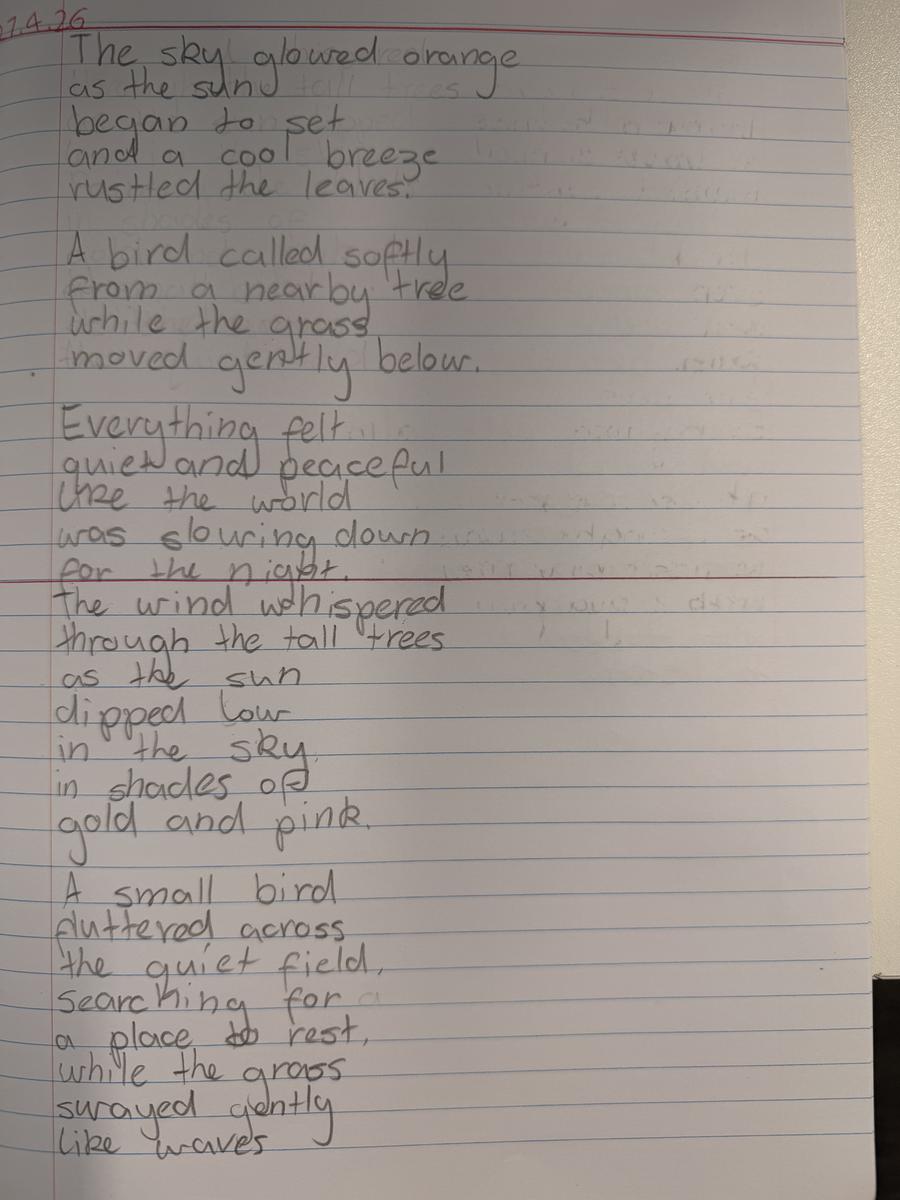 27.4.26
The sky glowed orange
as the sun
began to set
and a cool breeze
rustled the leaves.
A bird called softly
from a nearby tree
while the grass
moved gently below.
Everything felt
quiet and peaceful
like the world
was slowing down
for the night.
the wind whispered
through the tall trees
as the sun
dipped low
in the sky
in shades of
gold and pink.
A small bird
fluttered across
the quiet field,
searching for
a place to rest,
while the grass
swayed gently
like waves